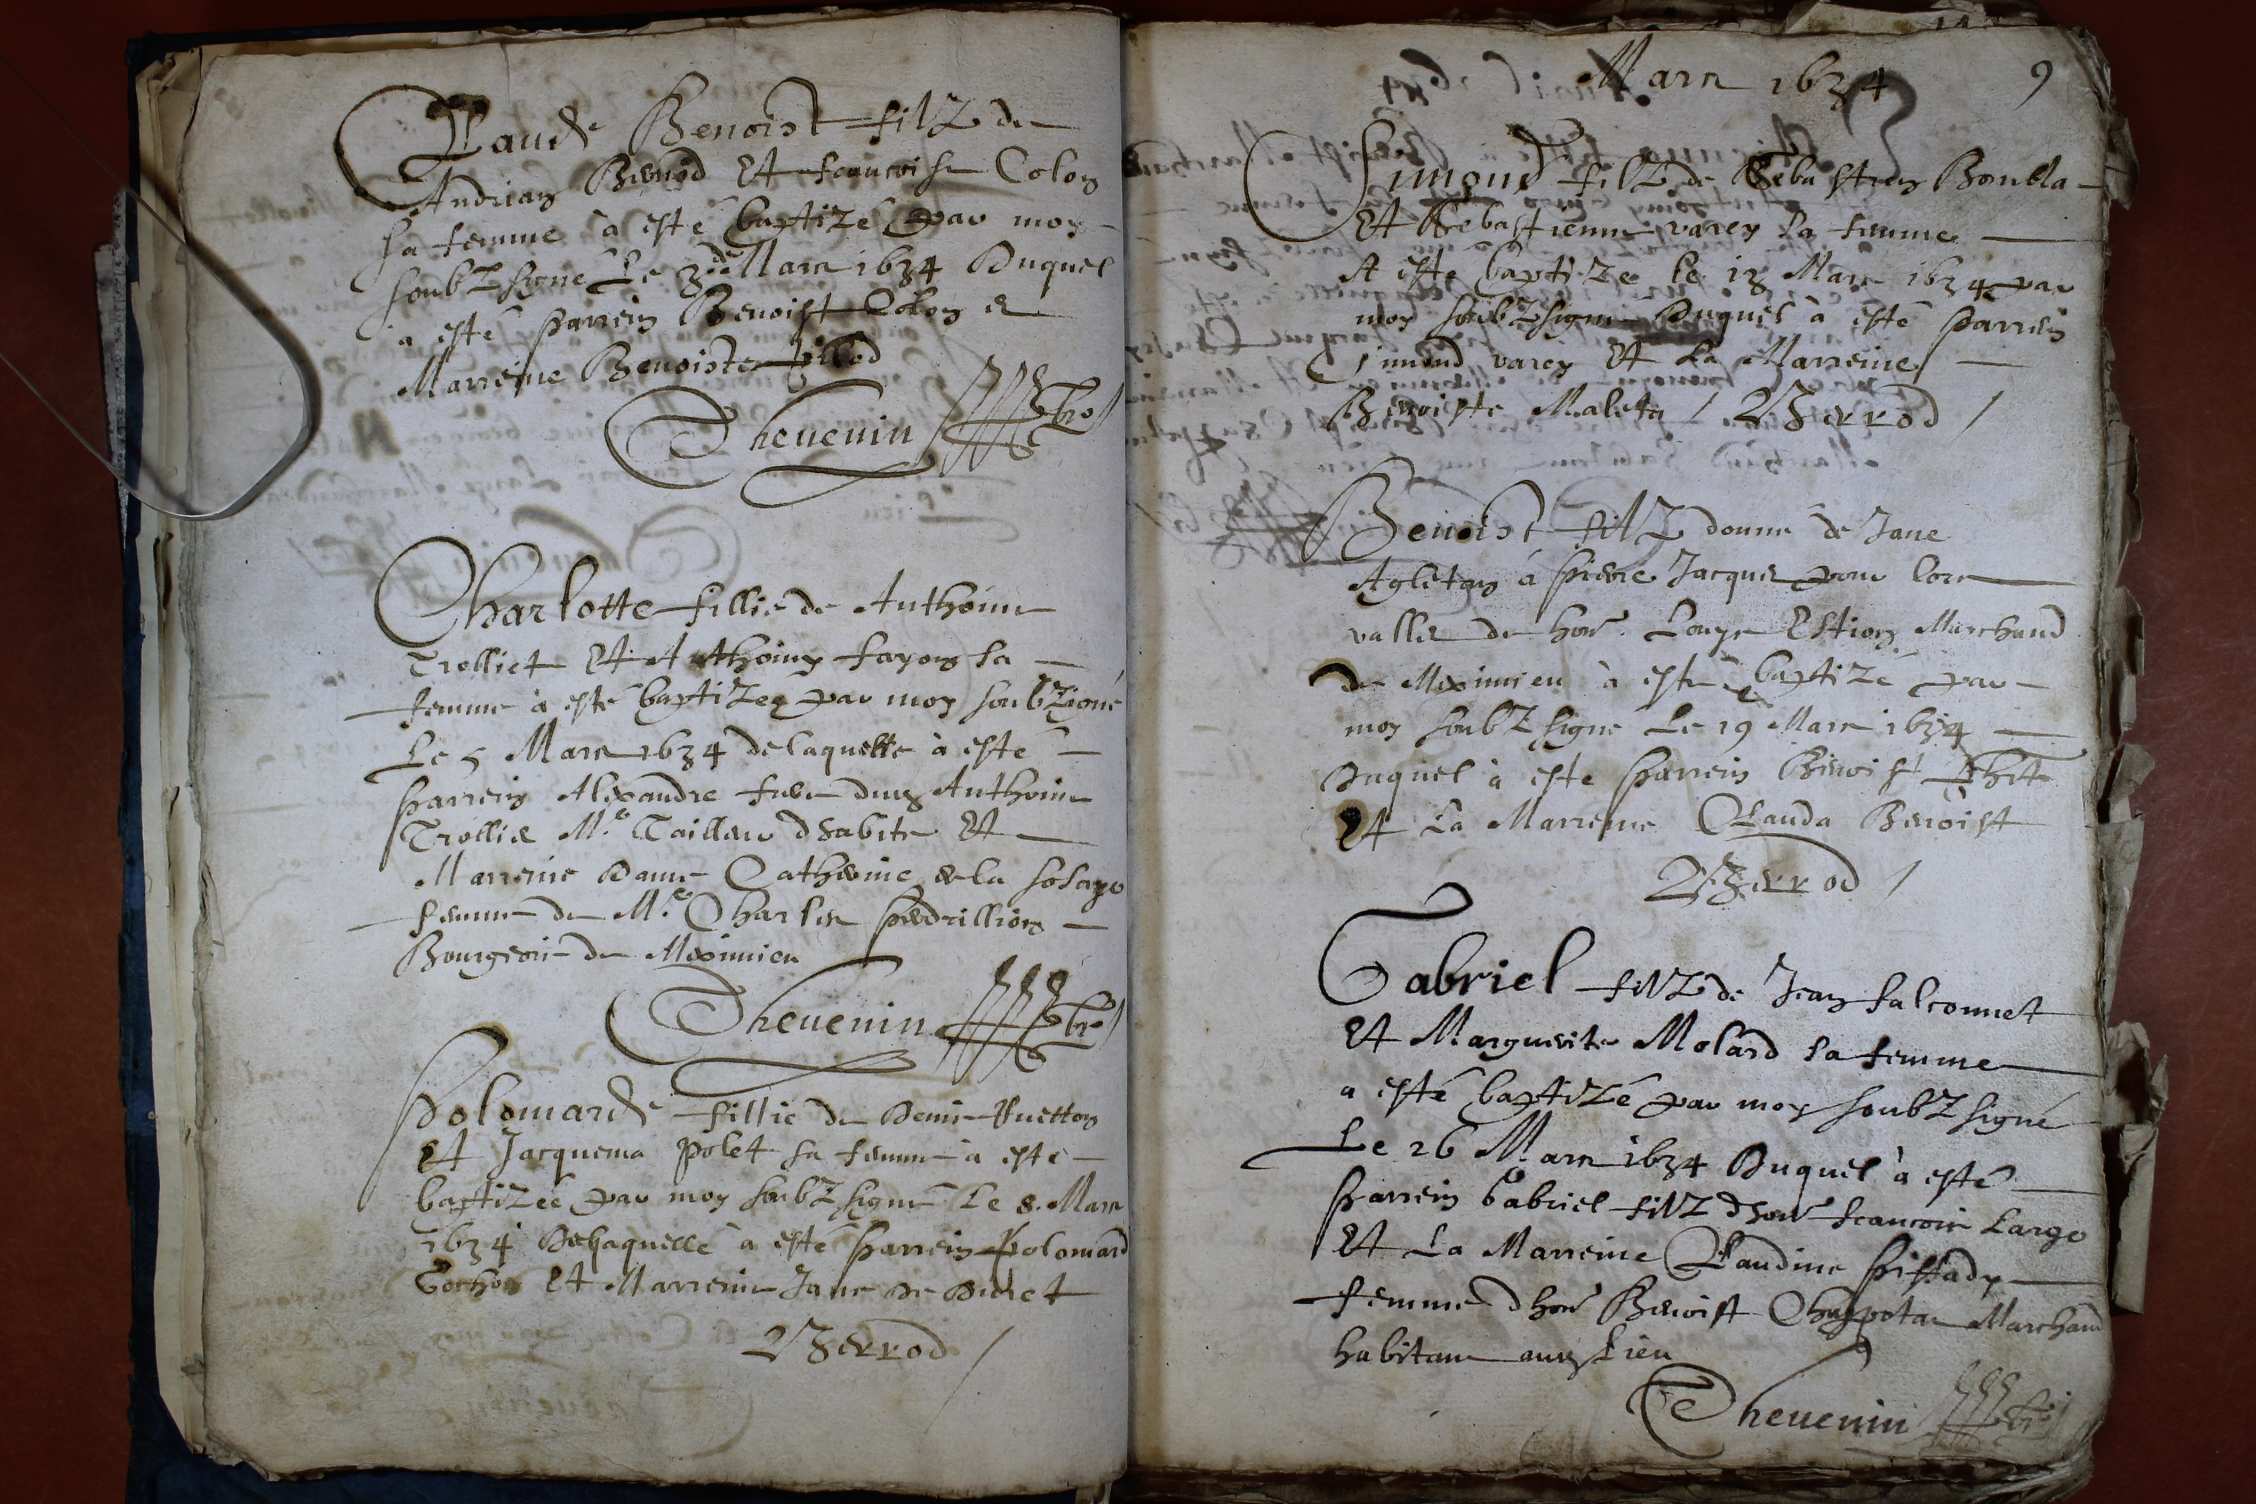 Claude Benoist filz de
Andrian Benoid et francoise Colon
sa femme à esté baptizé par moy
soubzsigné Le 3.de Mars 1634 Duquel
à esté parrein Benoist Colon et
Marreine Benoiste
Thevenin pbre
Charlotte fillie de Anthoine
Trolliet et Anthoiny fayon sa
femme à esté baptizee par moy soubzigné
Le 5 Mars 1634 de laquelle à esté
parrein Alexandre Anthoine
Trollie M.e Tailleur et
Marreine Dame Catherine de la
femme de M.e Charles perdrillion
Bourgeois de Meximieu
Thevenin pbre
Polomarde fillie de Denis Ruetton
et Jacquema polet sa femme à esté
baptizée par moy soubzsigné Le 8. Mars
1634 Delaquelle à esté parrein polomard
Cochon et Marreine Jane De
Verrod
Mars 1634 9
Simond filz de Sebastien Boulla
et Sebastienne varey sa femme
A esté baptizé le 13 Mars 1634 par
moy soubzsigné Duquel à esté parrein
Simond varey et La Marreine
Benoiste Maleta / Verrod /
Benoist filz donné de Jane
Agleton á pierre Jacques pour lors
vallet de hon. Louys Estion Marchand
de Meximieu à esté baptizé par
moy soubzsigné Le 19 Mars 1634
Duquel à esté parrein Benoist
et La Marreine Clauda Benoist
Verrod /
Gabriel filz de Jean falconnet
et Marguerite Molard sa femme
a esté baptizé par moy soubzsigné
Le 26 Mars 1634 Duquel à esté
parrein Gabriel filz dhon francois Large
et La Marreine Claudine pittady
femme dhon Benoist Chappotan Marchand
habitans aud Lieu
Thevenin pbre